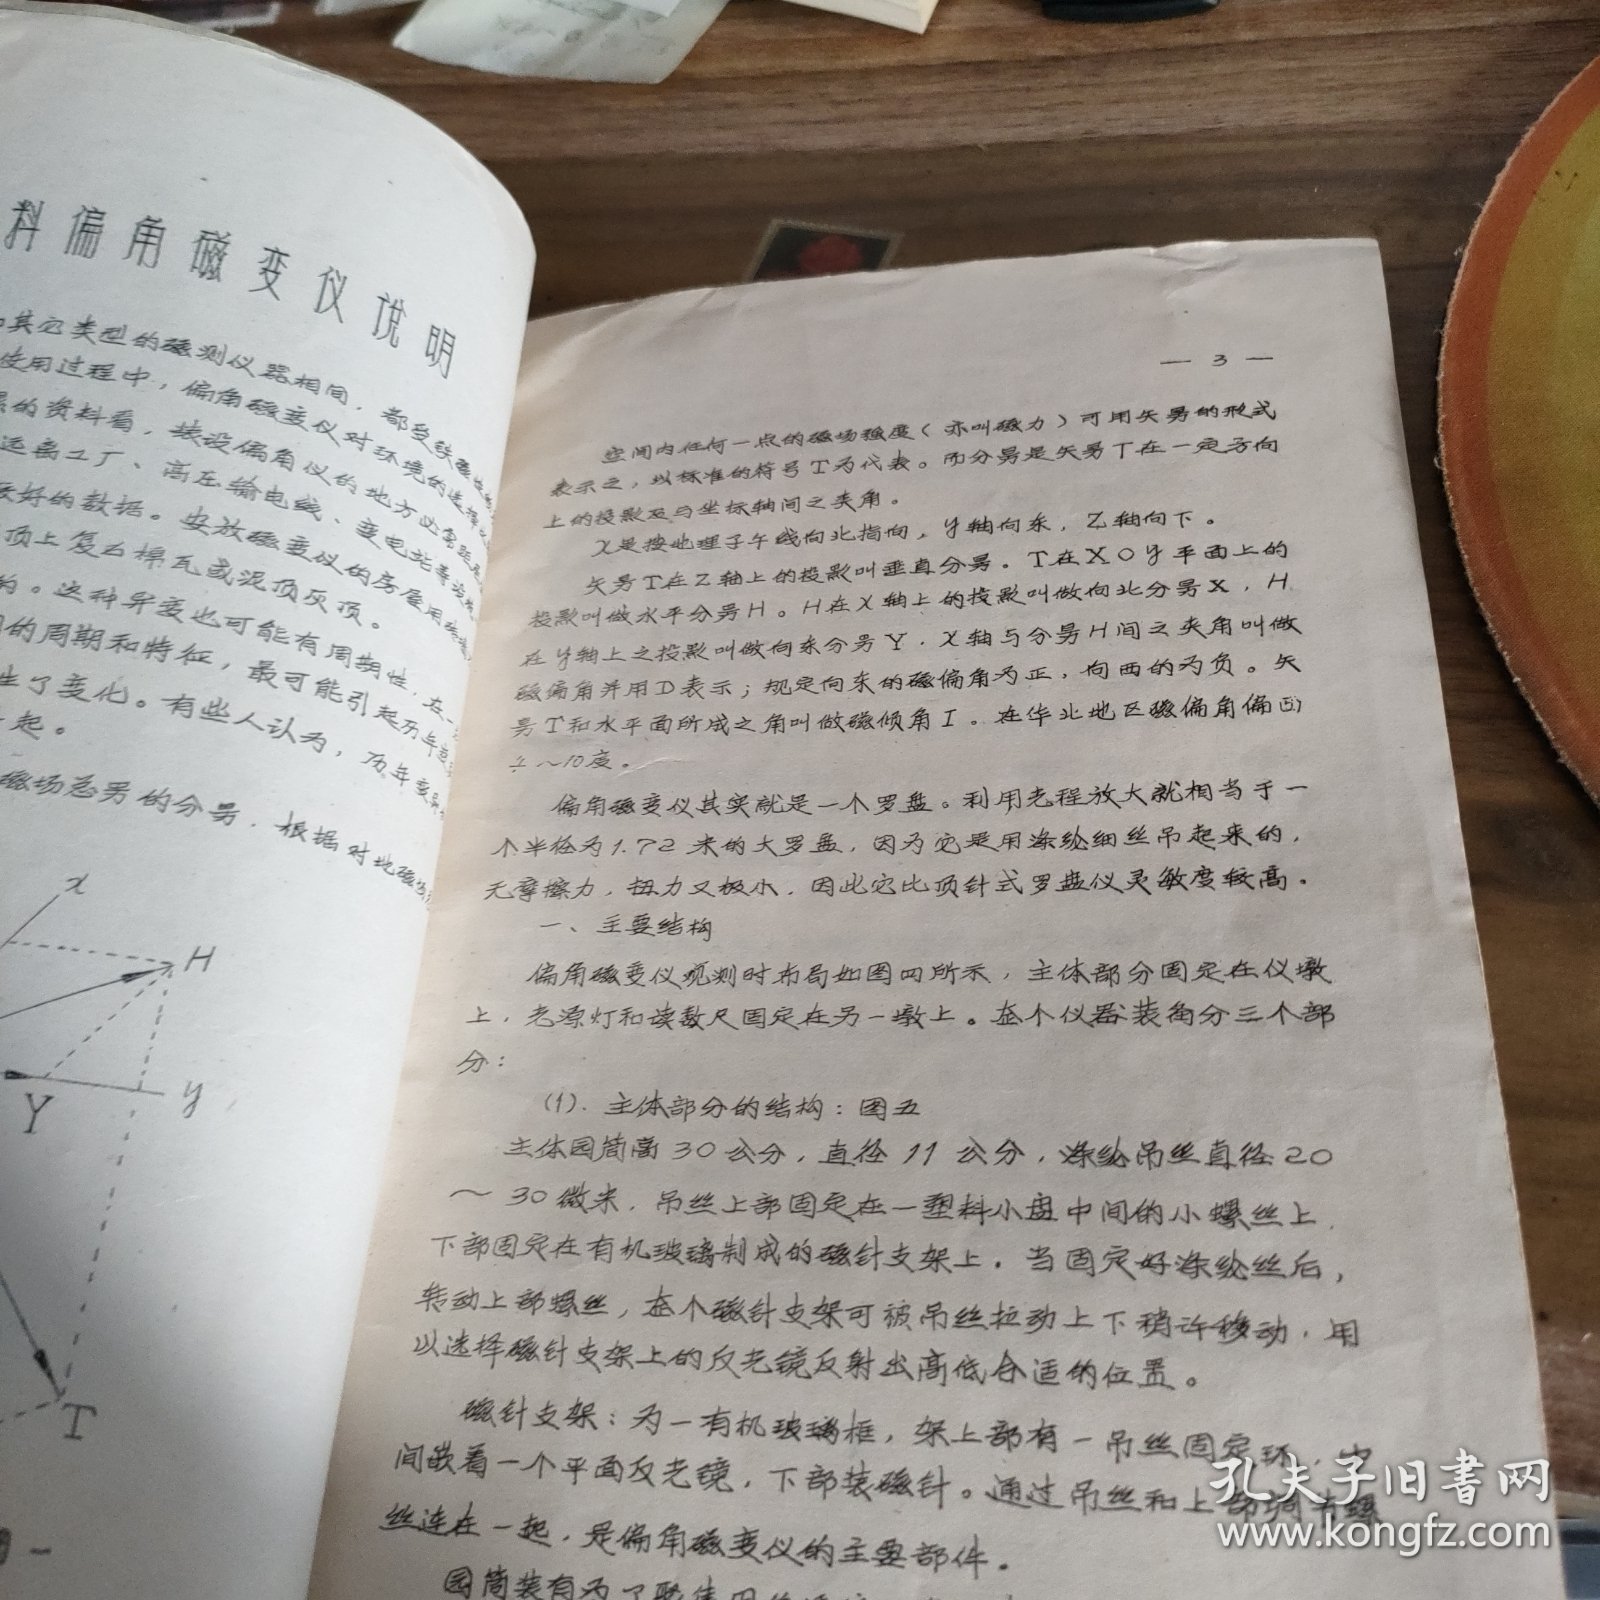 料偏角磁变仪说明
其它类型的磁测仪器相同，都受铁
使用过程中，偏角磁变仪对环境的选择
的资料看，装设偏角仪的地方必需距
工厂、高压输电线、变电站等
好的数据。安放磁变仪的房屋用
顶上复石棉瓦或泥顶灰顶。
的。这种异变也可能有周期性，在
的周期和特征，最可能引起历年
生了变化。有些人认为，历年变
起。
磁场总量的分量，根据对地磁场
x
H
Y
y
T
— 3 —
空间内任何一点的磁场强度（亦叫磁力）可用矢量的形式
表示之，以标准的符号T为代表。而分量是矢量T在一定方向
上的投影及与坐标轴间之夹角。
X是按地理子午线向北指向，y轴向东，Z轴向下。
矢量T在Z轴上的投影叫垂直分量。T在XOy平面上的
投影叫做水平分量H。H在X轴上的投影叫做向北分量X，H
在y轴上之投影叫做向东分量Y．X轴与分量H间之夹角叫做
磁偏角并用D表示；规定向东的磁偏角为正，向西的为负。矢
量T和水平面所成之角叫做磁倾角I。在华北地区磁偏角偏西
～10度。
偏角磁变仪其实就是一个罗盘。利用光程放大就相当于一
个半径为1.72米的大罗盘，因为它是用涤纶细丝吊起来的，
无摩擦力，扭力又极小，因此它比顶针式罗盘仪灵敏度较高。
一、主要结构
偏角磁变仪观测时布局如图四所示，主体部分固定在仪墩
上，光源灯和读数尺固定在另一墩上。在个仪器装角分三个部
分：
(1)．主体部分的结构：图五
主体园筒高30公分，直径11公分，涤纶吊丝直径20
～30微米，吊丝上部固定在一塑料小盘中间的小螺丝上，
下部固定在有机玻璃制成的磁针支架上。当固定好涤纶丝后，
转动上部螺丝，在个磁针支架可被吊丝拉动上下稍许移动，用
以选择磁针支架上的反光镜反射出高低合适的位置。
磁针支架：为一有机玻璃框，架上部有一吊丝固定环，
间嵌着一个平面反光镜，下部装磁针。通过吊丝和上部调节螺
丝连在一起，是偏角磁变仪的主要部件。
园筒装有为了聚焦用的
孔夫子旧书网
www.kongfz.com